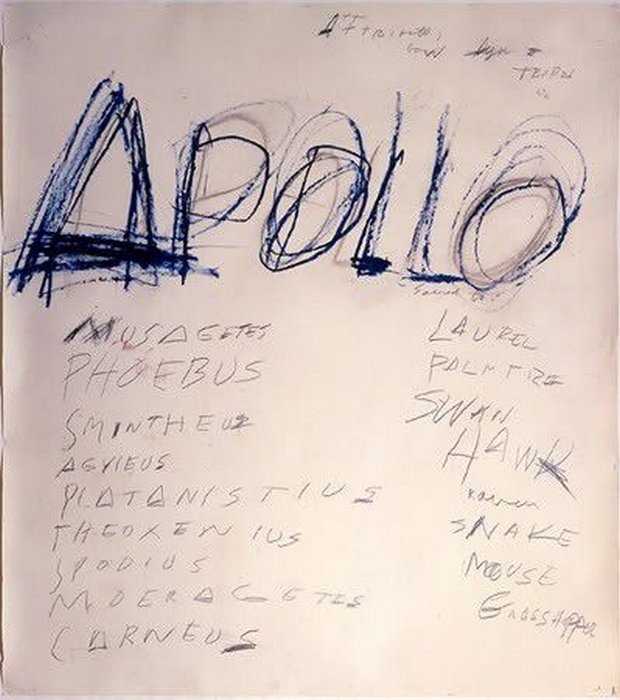 Attributes
bow
APOLLO
MUSAGETES
PHOEBUS
SMINTHEUS
AGYIEUS
PLATANISTIUS
THEOXENIUS
SPODIUS
MOERAGETES
CARNEUS
Sacred to
LAUREL
PALM TREE
SWAN
HAWK
raven
SNAKE
MOUSE
GRASSHOPPER